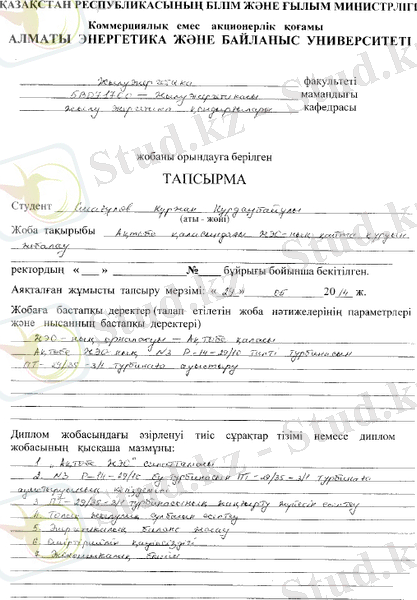 ҚАЗАҚСТАН РЕСПУБЛИКАСЫНЫҢ БІЛІМ ЖӘНЕ ҒЫЛЫМ МИНИСТРЛІГІ
Коммерциялық емес акционерлік қоғамы
АЛМАТЫ ЭНЕРГЕТИКА ЖӘНЕ БАЙЛАНЫС УНИВЕРСИТЕТІ
Жылуэнергетика факультеті
5В071700 – Жылуэнергетикасы мамандығы
Жылу энергетика қондырғылары кафедрасы
жобаны орындауға берілген
ТАПСЫРМА
Студент
(аты - жөні)
Жоба тақырыбы Ақтөбе қаласындағы ЖЭО-ның
жобалау
ректордың « » № бұйрығы бойынша бекітілген.
Аяқталған жұмысты тапсыру мерзімі: « 29 » 05 2014 ж.
Жобаға бастапқы деректер (талап етілетін жоба нәтижелерінің параметрлері
және нысанның бастапқы деректері)
ЖЭО-ның орналасуы – Ақтөбе қаласы
Ақтөбе ЖЭО-ның №3 Р-14-29/16 типті турбинасын
ПТ-29/35-3/1 турбинаға ауыстыру
Диплом жобасындағы әзірленуі тиіс сұрақтар тізімі немесе диплом
жобасының қысқаша мазмұны:
1. "Ақтөбе ЖЭО" сипаттамасы
2. №3 Р-14-29/16 бу турбинасын ПТ-29/35-3/1 турбинаға
ауыстырусының
3. ПТ-29/35-3/1 турбинасының есептеу
4. есептеу
5. баланс жасау
6. Өміртіршілік қауіпсіздігі
7. Экономикалық бөлім
Stud.kz - Stud.kz
Stud.kz - Stud.kz
Stud.kz - Stud.kz